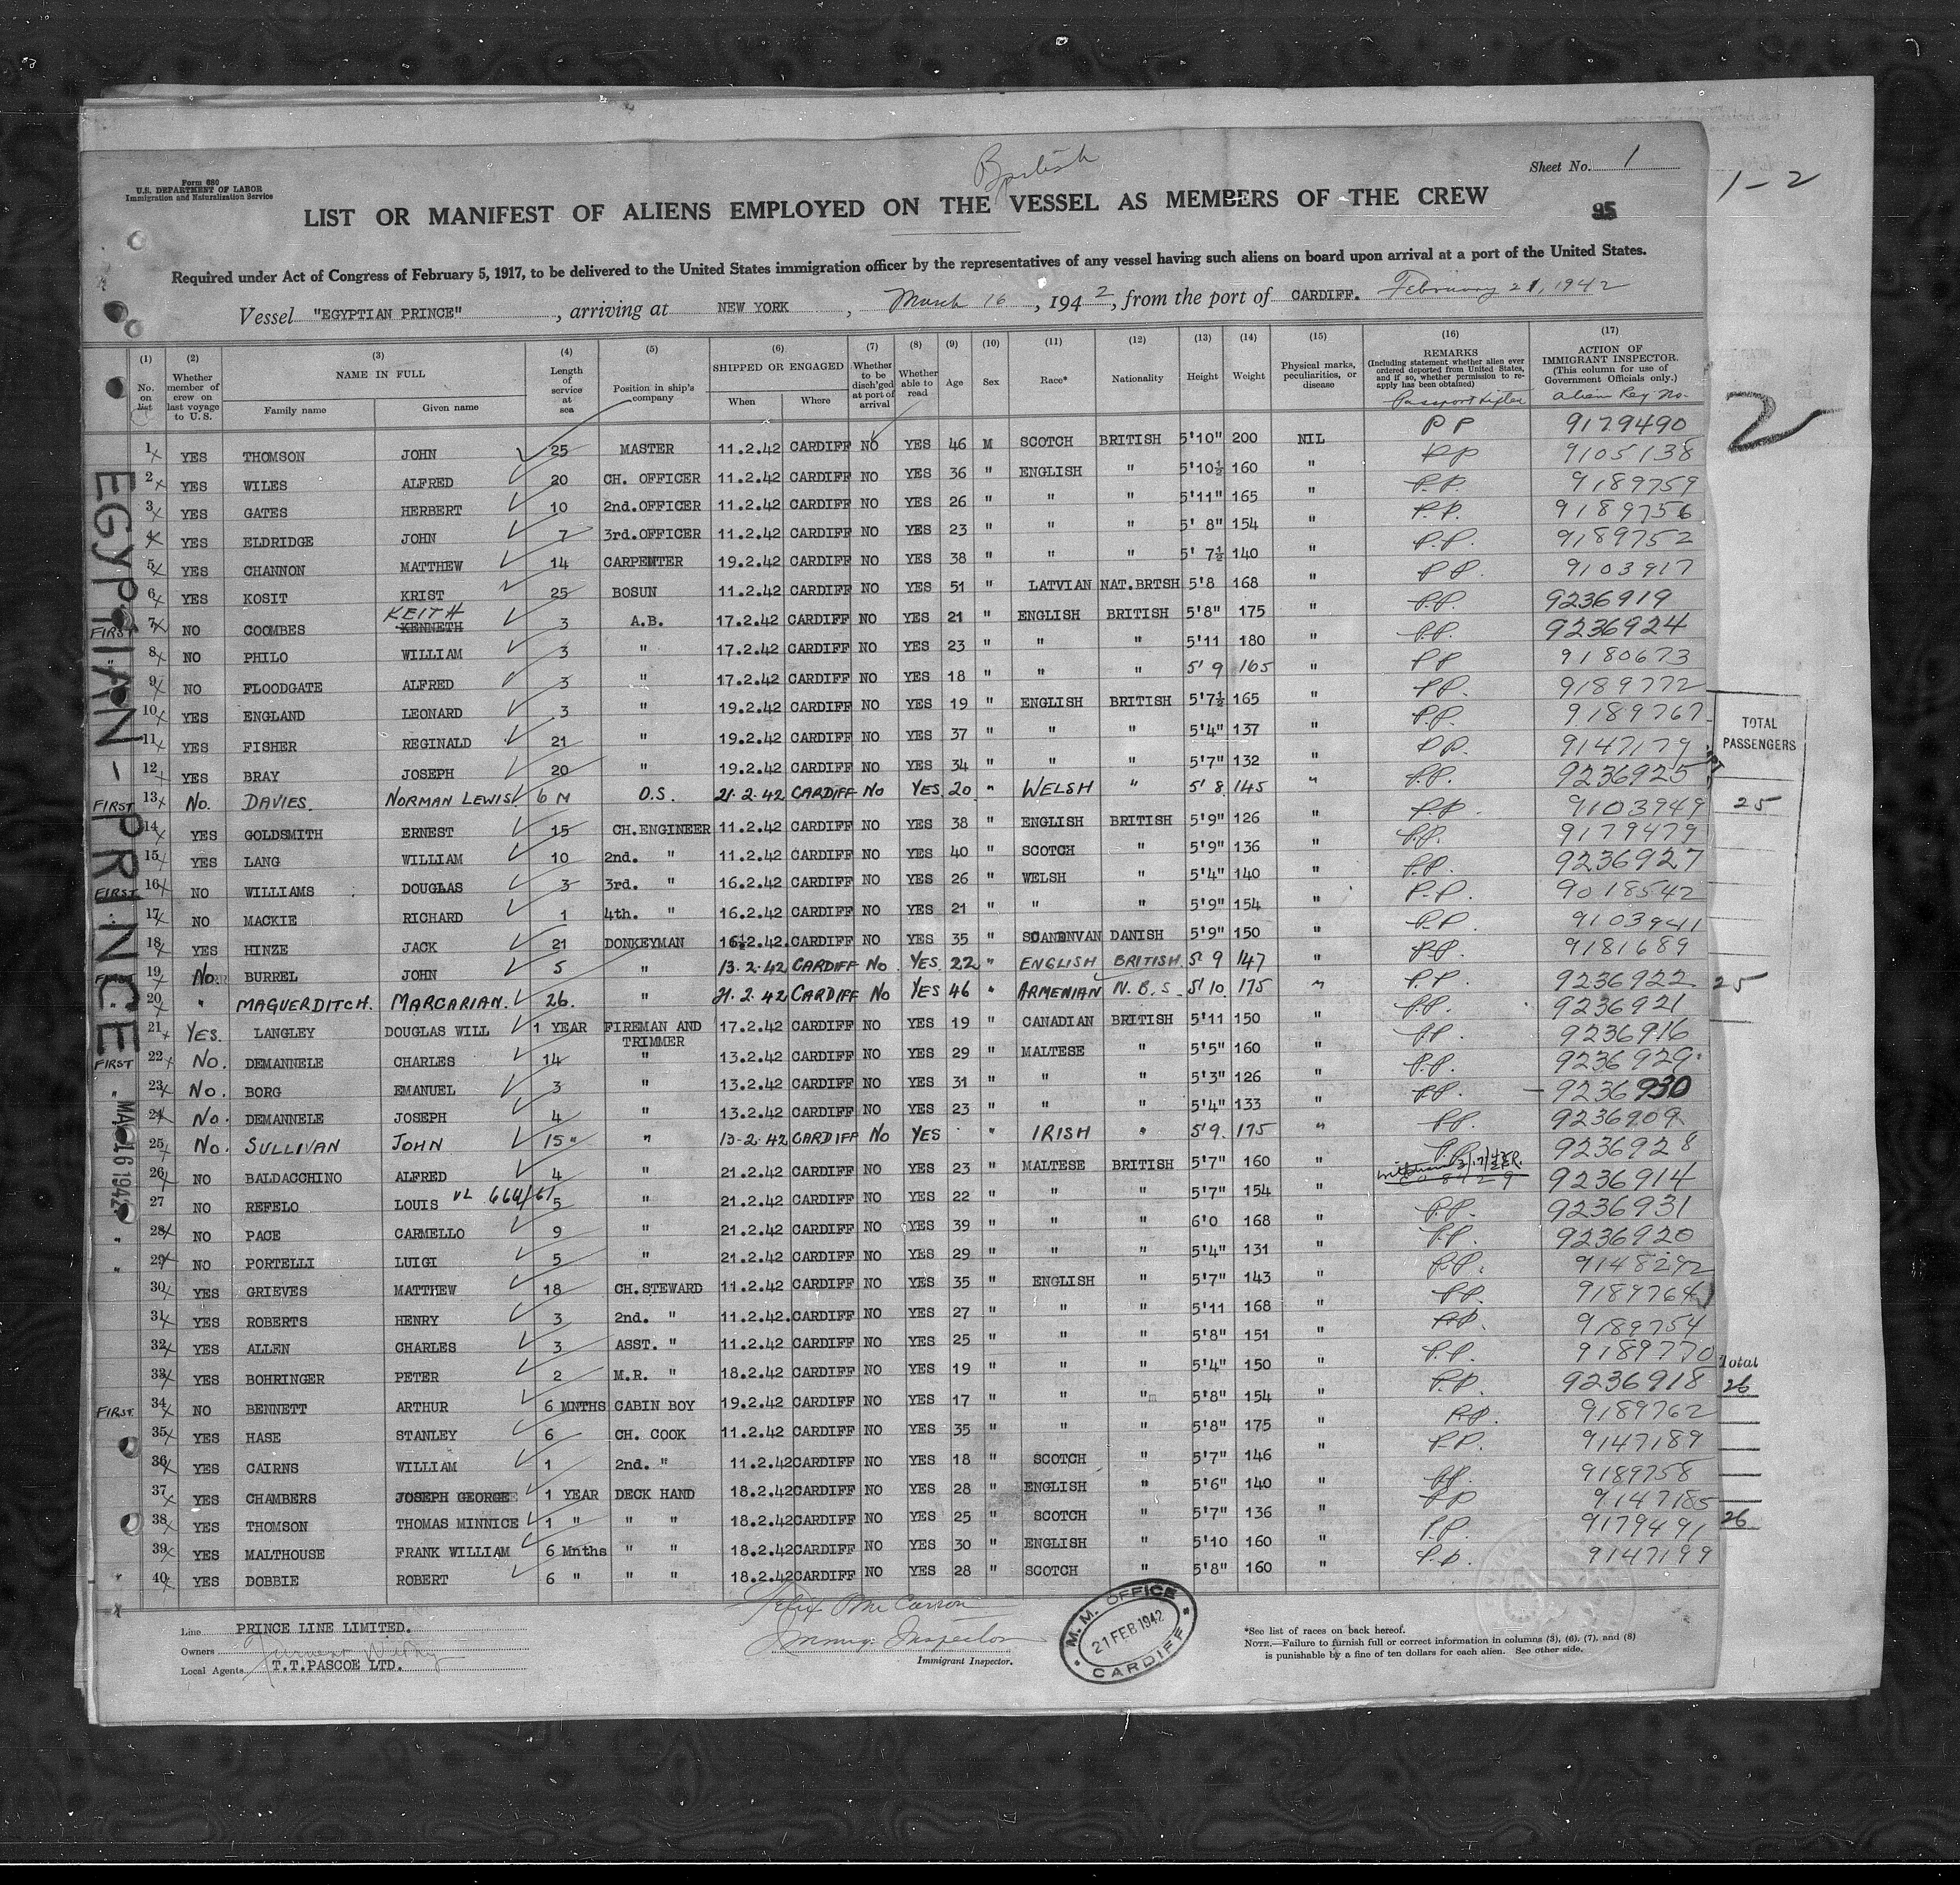 British
Sheet No. 1
1-2
Form 680
U.S. DEPARTMENT OF LABOR
Immigration and Naturalization Service
LIST OR MANIFEST OF ALIENS EMPLOYED ON THE VESSEL AS MEMBERS OF THE CREW
95
Required under Act of Congress of February 5, 1917, to be delivered to the United States immigration officer by the representatives of any vessel having such aliens on board upon arrival at a port of the United States.
Vessel "EGYPTIAN PRINCE", arriving at NEW YORK, March 16, 1942, from the port of CARDIFF. February 21, 1942
(1) No. on list (2) Whether member of crew on last voyage to U. S. (3) NAME IN FULL Family name Given name (4) Length of service at sea (5) Position in ship's company (6) SHIPPED OR ENGAGED When Where (7) Whether to be disch'ged at port of arrival (8) Whether able to read (9) Age (10) Sex (11) Race* (12) Nationality (13) Height (14) Weight (15) Physical marks, peculiarities, or disease (16) REMARKS (Including statement whether alien ever ordered deported from United States, and if so, whether permission to re-apply has been obtained) (17) ACTION OF IMMIGRANT INSPECTOR. (This column for use of Government Officials only.) Alien Reg No.
2
1 YES THOMSON JOHN 25 MASTER 11.2.42 CARDIFF NO YES 46 M SCOTCH BRITISH 5'10" 200 NIL PP 9179490
2 YES WILES ALFRED 20 CH. OFFICER 11.2.42 CARDIFF NO YES 36 " ENGLISH " 5'10½ 160 " PP 9105138
3 YES GATES HERBERT 10 2nd.OFFICER 11.2.42 CARDIFF NO YES 26 " " " 5'11" 165 " P.P. 9189759
4 YES ELDRIDGE JOHN 7 3rd.OFFICER 11.2.42 CARDIFF NO YES 23 " " " 5' 8" 154 " P.P. 9189756
5 YES CHANNON MATTHEW 14 CARPENTER 19.2.42 CARDIFF NO YES 38 " " " 5' 7½ 140 " P.P. 9189752
6 YES KOSIT KRIST 25 BOSUN 11.2.42 CARDIFF NO YES 51 " LATVIAN NAT.BRTSH 5'8 168 " PP. 9103917
FIRST 7 NO COOMBES KEITH KENNETH 3 A.B. 17.2.42 CARDIFF NO YES 21 " ENGLISH BRITISH 5'8" 175 " P.P. 9236919
8 NO PHILO WILLIAM 3 " 17.2.42 CARDIFF NO YES 23 " " " 5'11 180 " P.P. 9236924
9 NO FLOODGATE ALFRED 3 " 17.2.42 CARDIFF NO YES 18 " " " 5' 9 165 " PP 9180673
10 YES ENGLAND LEONARD 3 " 19.2.42 CARDIFF NO YES 19 " ENGLISH BRITISH 5'7½ 165 " PP. 9189772
11 YES FISHER REGINALD 21 " 19.2.42 CARDIFF NO YES 37 " " " 5'4" 137 " P.P. 9189767
12 YES BRAY JOSEPH 20 " 19.2.42 CARDIFF NO YES 34 " " " 5'7" 132 " P.P. 9147179
FIRST 13 No. DAVIES. NORMAN LEWIS 6 M O.S. 21.2.42 CARDIFF No YES 20 " WELSH " 5' 8 145 " P.P. 9236925
14 YES GOLDSMITH ERNEST 15 CH.ENGINEER 11.2.42 CARDIFF NO YES 38 " ENGLISH BRITISH 5'9" 126 " PP. 9103949
15 YES LANG WILLIAM 10 2nd. " 11.2.42 CARDIFF NO YES 40 " SCOTCH " 5'9" 136 " P.P. 9179479
FIRST 16 NO WILLIAMS DOUGLAS 3 3rd. " 16.2.42 CARDIFF NO YES 26 " WELSH " 5'4" 140 " P.P. 9236927
17 NO MACKIE RICHARD 1 4th. " 16.2.42 CARDIFF NO YES 21 " " " 5'9" 154 " P.P. 9018542
18 YES HINZE JACK 21 DONKEYMAN 16.2.42. CARDIFF NO YES 35 " SCANDNVAN DANISH 5'9" 150 " P.P. 9103941
19 No. BURREL JOHN 5 " 13.2.42 CARDIFF No YES 22 " ENGLISH BRITISH 5' 9 147 " PP. 9181689
20 " MAGUERDITCH. MARGARIAN. 26. " 21.2.42 CARDIFF No YES 46 " ARMENIAN N.B.S. 5' 10. 175 " P.P. 9236922
21 YES. LANGLEY DOUGLAS WILL 1 YEAR FIREMAN AND TRIMMER 17.2.42 CARDIFF NO YES 19 " CANADIAN BRITISH 5'11 150 " P.P. 9236921
FIRST 22 No. DEMANNELE CHARLES 14 " 13.2.42 CARDIFF NO YES 29 " MALTESE " 5'5" 160 " P.P. 9236916
" 23 No. BORG EMANUEL 3 " 13.2.42 CARDIFF NO YES 31 " " " 5'3" 126 " P.P. 9236929
24 No. DEMANNELE JOSEPH 4 " 13.2.42 CARDIFF NO YES 23 " " " 5'4" 133 " P.P. 9236930
25 No. SULLIVAN JOHN 15 " " 13.2.42 CARDIFF No YES " IRISH " 5'9. 175 " P.P. 9236909
26 NO BALDACCHINO ALFRED 4 " 21.2.42 CARDIFF NO YES 23 " MALTESE BRITISH 5'7" 160 " P.P. 9236928
27 NO REFELO LOUIS 5 " 21.2.42 CARDIFF NO YES 22 " " " 5'7" 154 " 9236914
" 28 NO PACE CARMELLO 9 " 21.2.42 CARDIFF NO YES 39 " " " 6'0 168 " P.P. 9236931
" 29 NO PORTELLI LUIGI 5 " 21.2.42 CARDIFF NO YES 29 " " " 5'4" 131 " P.P. 9236920
30 YES GRIEVES MATTHEW 18 CH.STEWARD 11.2.42 CARDIFF NO YES 35 " ENGLISH " 5'7" 143 " P.P. 9148292
31 YES ROBERTS HENRY 3 2nd. " 11.2.42. CARDIFF NO YES 27 " " " 5'11 168 " P.P. 9189764
32 YES ALLEN CHARLES 3 ASST. " 11.2.42 CARDIFF NO YES 25 " " " 5'8" 151 " P.P. 9189754
33 YES BOHRINGER PETER 2 M.R. " 18.2.42 CARDIFF NO YES 19 " " " 5'4" 150 " P.P. 9189770
FIRST. 34 NO BENNETT ARTHUR 6 MNTHS CABIN BOY 19.2.42 CARDIFF NO YES 17 " " " 5'8" 154 " P.P. 9236918
35 YES HASE STANLEY 6 CH. COOK 11.2.42 CARDIFF NO YES 35 " " " 5'8" 175 " P.P. 9189762
36 YES CAIRNS WILLIAM 1 2nd. " 11.2.42 CARDIFF NO YES 18 " SCOTCH " 5'7" 146 " P.P. 9147189
37 YES CHAMBERS JOSEPH GEORGE 1 YEAR DECK HAND 18.2.42 CARDIFF NO YES 28 " ENGLISH " 5'6" 140 " PP. 9189758
38 YES THOMSON THOMAS MINNICE 1 " " " 18.2.42 CARDIFF NO YES 25 " SCOTCH " 5'7" 136 " PP 9147185
39 YES MALTHOUSE FRANK WILLIAM 6 Mnths " " 18.2.42 CARDIFF NO YES 30 " ENGLISH " 5'10 160 " P.P. 9179491
40 YES DOBBIE ROBERT 6 " " " 18.2.42 CARDIFF NO YES 28 " SCOTCH " 5'8" 160 " P.P. 9147199
EGYPTIAN-PRINCE
MAR 16 1942
TOTAL PASSENGERS
25
25
Total
26
26
Line PRINCE LINE LIMITED.
Owners Furness Withy
Local Agents T.T.PASCOE LTD.
Immig. Inspector
Immigrant Inspector.
M. M. OFFICE
21 FEB 1942
CARDIFF
*See list of races on back hereof.
NOTE.—Failure to furnish full or correct information in columns (3), (6), (7), and (8)
is punishable by a fine of ten dollars for each alien. See other side.